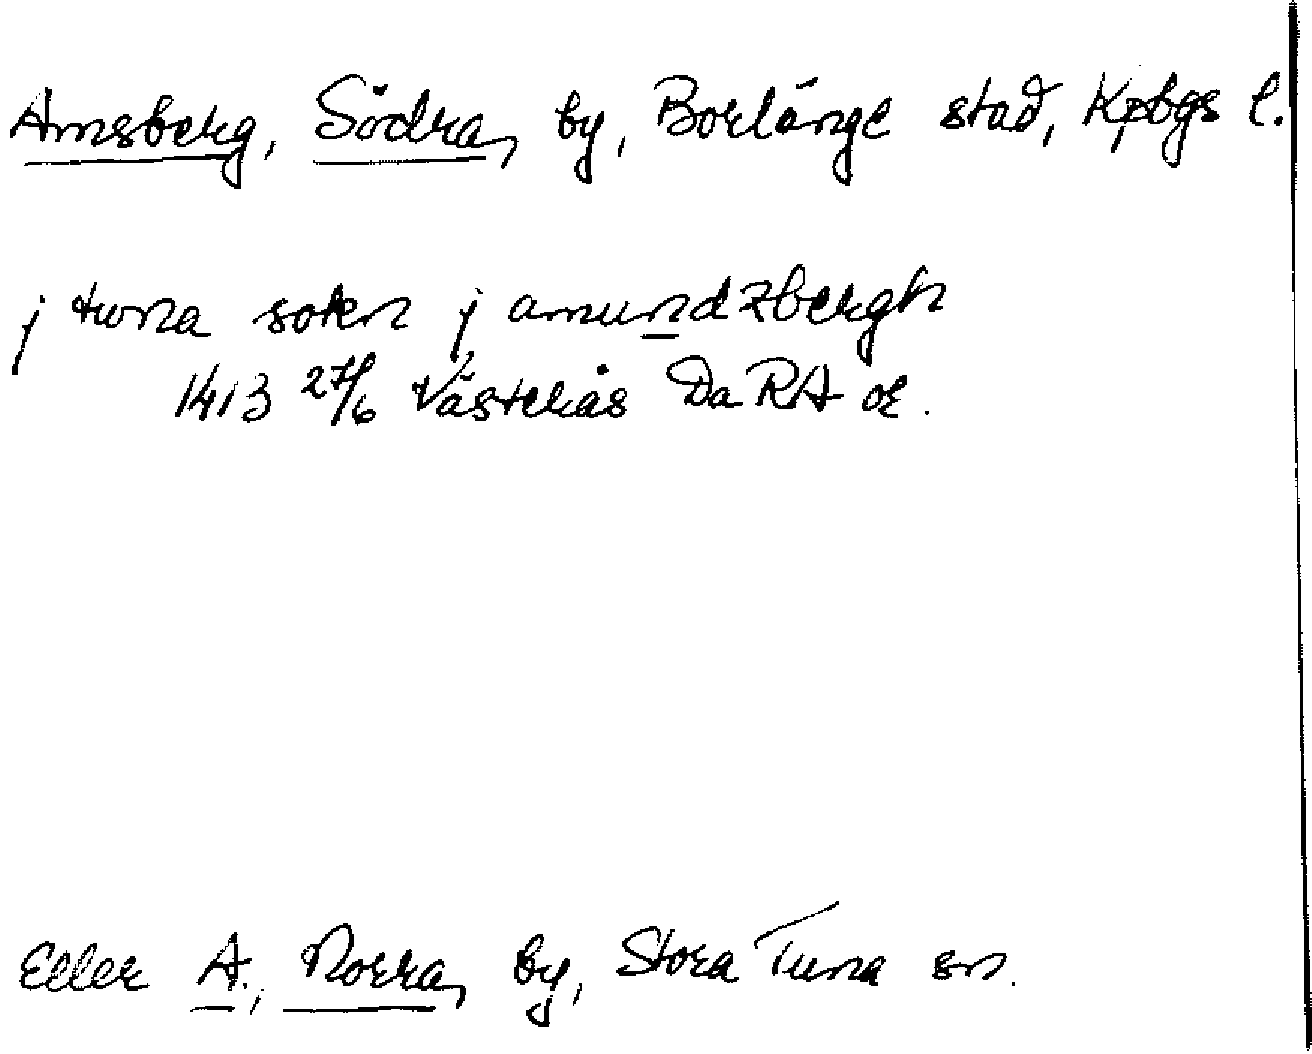 Amsberg, Södra, by, Borlänge stad, Kpbgs l.
j tuna sokn j amundzbergh
1413 27/6 Västerås DaRA or.
Eller A., Norra, by, Stora Tuna sn.